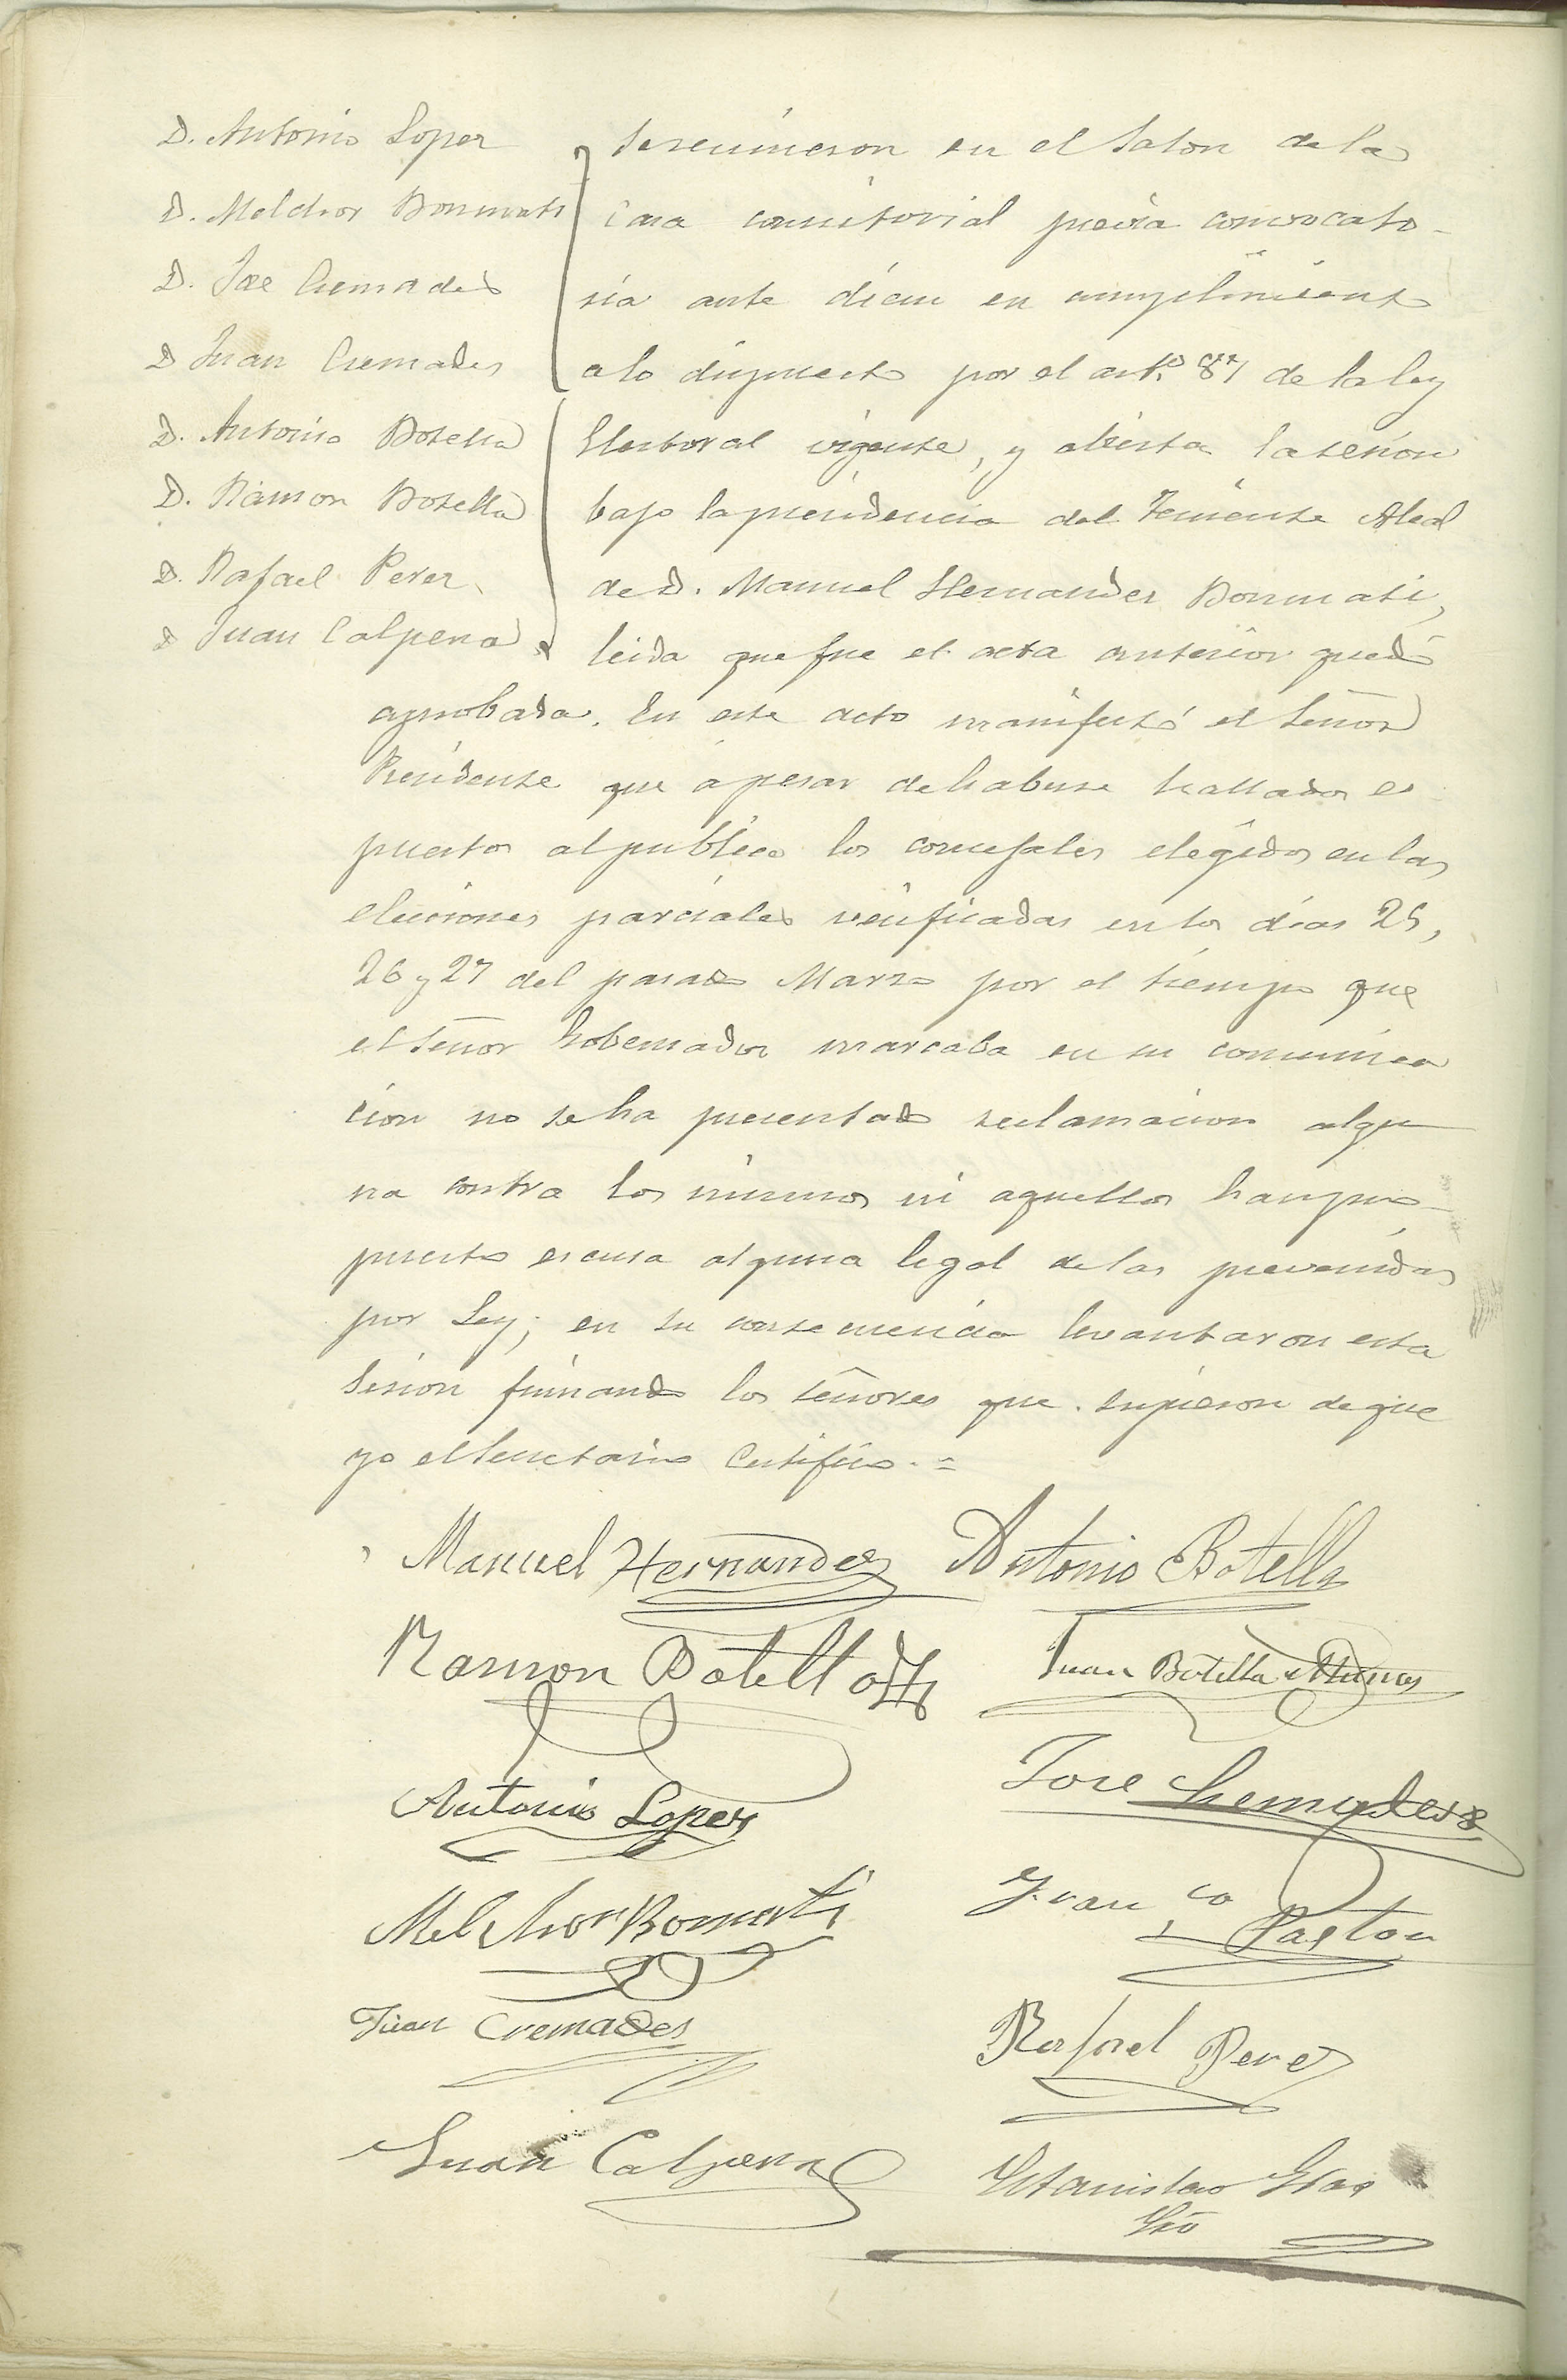 D. Antonio Lopez
D. Melchor Bonmati
D. Jose Cremades
D Juan Cremades
D. Antonio Botella
D. Ramon Botella
D. Rafael Perez
D Juan Calpena
se reunieron en el Salon de la
Casa consistorial previa convocato-
ria ante diem en cumplimiento
a lo dispuesto por el artº 87 de la ley
Electoral vigente, y abierta la sesion
bajo la presidencia del Teniente Alcal
de D. Manuel Hernandez Bonmati,
leida que fue el acta anterior quedó
aprobada. En este acto manifestó el Señor
Presidente que ápesar de haberse hallados es
puestos al publico los concejales elegidos en las
elecciones parciales verificadas en los dias 25,
26 y 27 del pasado Marzo por el tiempo que
el Señor Gobernador marcaba en su comunica
cion no se ha presentado reclamacion algu
na contra los mismos ni aquellos han pro-
puesto escusa alguna legal de las prevenidas
por Ley; en su consecuencia levantaron esta
Sesion firmando los Señores que supieron de que
yo el Secretario Certifico.=
Manuel Hernandez Antonio Botella
Ramon Botella Juan Botella
Antonio Lopez Jose Cremades
Melchor Bonmati Franco Pastor
Juan Cremades Rafael Perez
Juan Calpena Estanislao
Srio